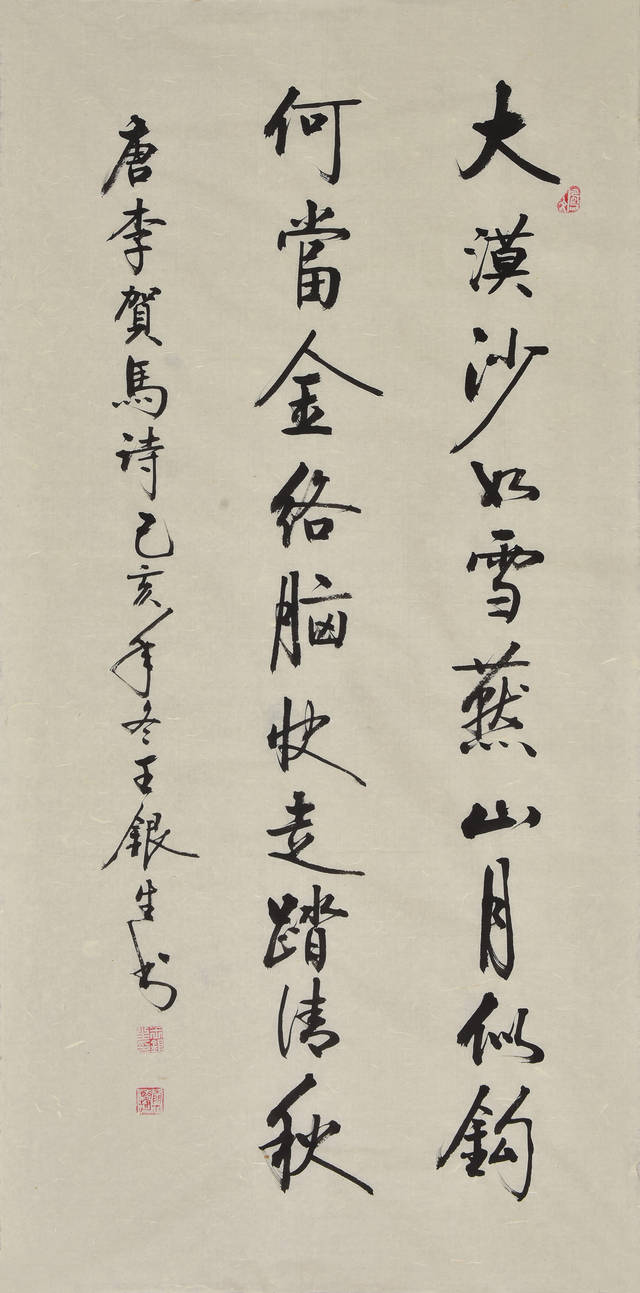 大漠沙如雪燕山月似鈎
何當金络腦快走踏清秋
唐李賀馬诗己亥年冬王銀生书